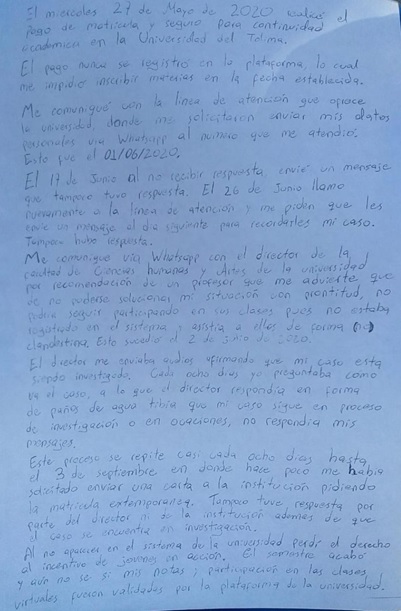 El miercoles 27 de Mayo de 2020 realicé el
pago de matricula y seguro para continuidad
academica en la Universidad del Tolima.
El pago nunca se registró en la plataforma, lo cual
me impidio inscribir materias en la fecha establecida.
Me comuniqué con la linea de atencion que ofrece
la universidad, donde me solicitaron enviar mis datos
personales via Whatsapp al numero que me atendio.
Esto fue el 01/06/2020.
El 17 de Junio al no recibir respuesta, envié un mensaje
que tampoco tuvo respuesta. El 26 de Junio llamo
nuevamente a la linea de atención y me piden que les
envie un mensaje al dia siguiente para recordarles mi caso.
Tampoco hubo respuesta.
Me comunique via Whatsapp con el director de la
facultad de Ciencias humanas y Artes de la universidad
por recomendación de un profesor que me advierte que
de no poderse solucionar mi situación con prontitud, no
podria seguir participando en sus clases pues no estaba
registrado en el sistema y asistia a ellas de forma
clandestina. Esto sucedió el 2 de junio de 2020.
El director me enviaba audios afirmando que mi caso esta
siendo investigado. Cada ocho dias yo preguntaba como
va el caso, a lo que el director respondia en forma
de paños de agua tibia que mi caso sigue en proceso
de investigación o en ocaciones, no respondia mis
mensajes.
Este proceso se repite casi cada ocho dias hasta
el 3 de septiembre en donde hace poco me habia
solicitado enviar una carta a la institución pidiendo
la matricula extemporanea. Tampoco tuve respuesta por
parte del director ni de la institución ademas de que
el caso se encuentra en investigación.
Al no aparecer en el sistema de la universidad perdi el derecho
al incentivo de jovenes en acción. El semestre acabó
y aun no se si mis notas y participacion en las clases
virtuales fueron validadas por la plataforma de la universidad.